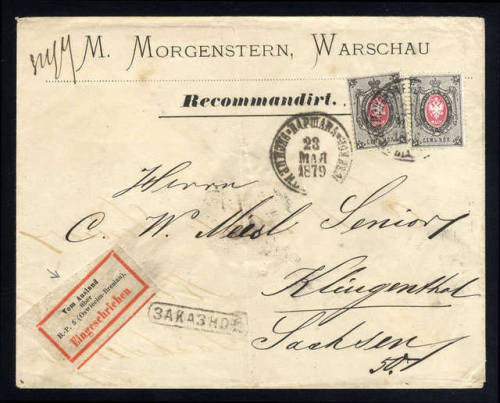 M. Morgenstern, Warschau
Recommandirt.
ВАРШАВА
23
МАЯ
1879
Herrn
C. W. Meisel Senior
Klingenthal
Sachsen
Vom Ausland
über
B.-P. 5 (Oswiecim-Breslau).
Eingeschrieben
ЗАКАЗНОЕ